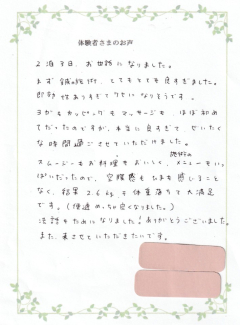 体験者さまのお声
2泊3日、お世話になりました。
まず鍼の施術、とてもとても良すぎました。
即効性ありすぎてクセになりそうです。
ヨガもカッピングもマッサージも、ほぼ初め
てだったのですが、本当に良すぎて、ぜいたく
な時間過ごさせていただけました。
スムージーもお料理もおいしく、施術のメニューもいっ
ぱいだったので、空腹感もたまも感じること
なく、結果2.6kgも体重落ちて大満足
です。(便通めっちゃ良くなりました。)
法話もためになりました!ありがとうございました。
また、来させていただきたいです。